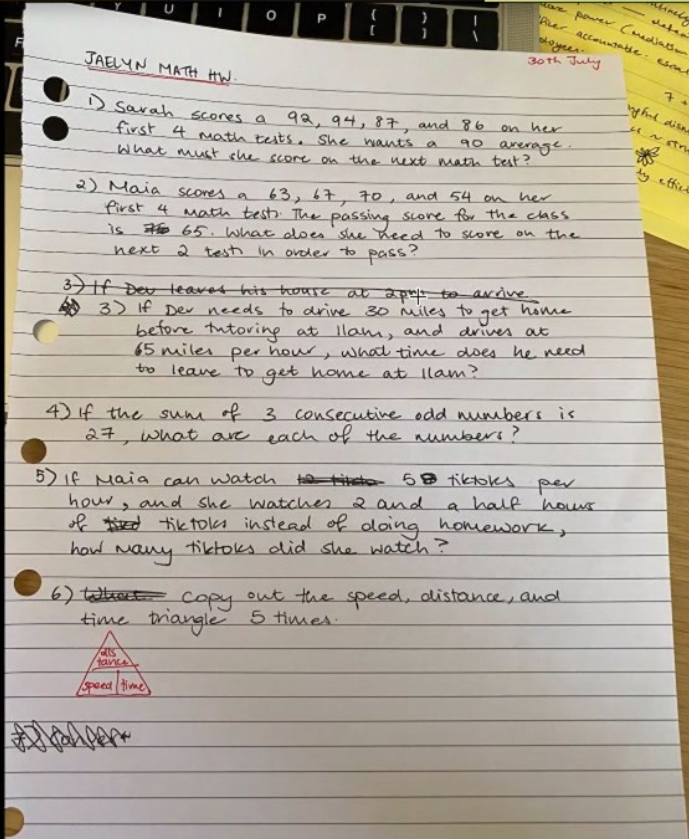 Y U I O P { [ } ] | \
JAELYN MATH HW.
30th July
1) Sarah scores a 92, 94, 87, and 86 on her
first 4 math tests. She wants a 90 average.
What must she score on the next math test?
2) Maia scores a 63, 67, 70, and 54 on her
first 4 math tests. The passing score for the class
is 65. What does she need to score on the
next 2 tests in order to pass?
3) If Dev leaves his house at 2pm to arrive
3) If Dev needs to drive 30 miles to get home
before tutoring at 11am, and drives at
65 miles per hour, what time does he need
to leave to get home at 11am?
4) If the sum of 3 consecutive odd numbers is
27, what are each of the numbers?
5) If Maia can watch 58 tiktoks per
hour, and she watches 2 and a half hours
of tiktoks instead of doing homework,
how many tiktoks did she watch?
6) copy out the speed, distance, and
time triangle 5 times.
dis
tance
speed time
power
accountable.
7 +